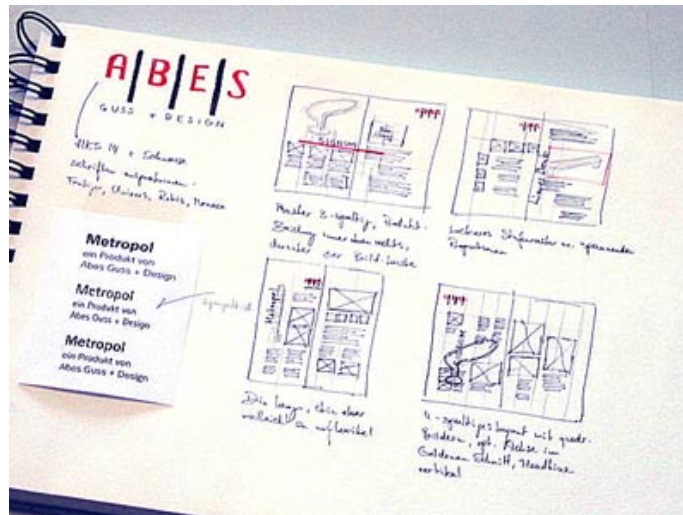 A|B|E|S
GUSS + DESIGN
HKS 14 + Schwarz
Schriften ausprobieren -
Frutiger, Univers, Rotis,
Metropol
ein Produkt von
Abes Guss + Design
Metropol
ein Produkt von
Abes Guss + Design
Metropol
ein Produkt von
Abes Guss + Design
Signum
Raster 2-spaltig, Produkt-
immer oben rechts,
darunter der Bild
Lockeres Stufenraster m. spannenden
Proportionen
Metropol
Din lang, chic aber
vielleicht zu unflexibel
4-spaltiges Layout mit quadr.
Bildern, opt. Achse im
Goldenen Schnitt, Headline
vertikal